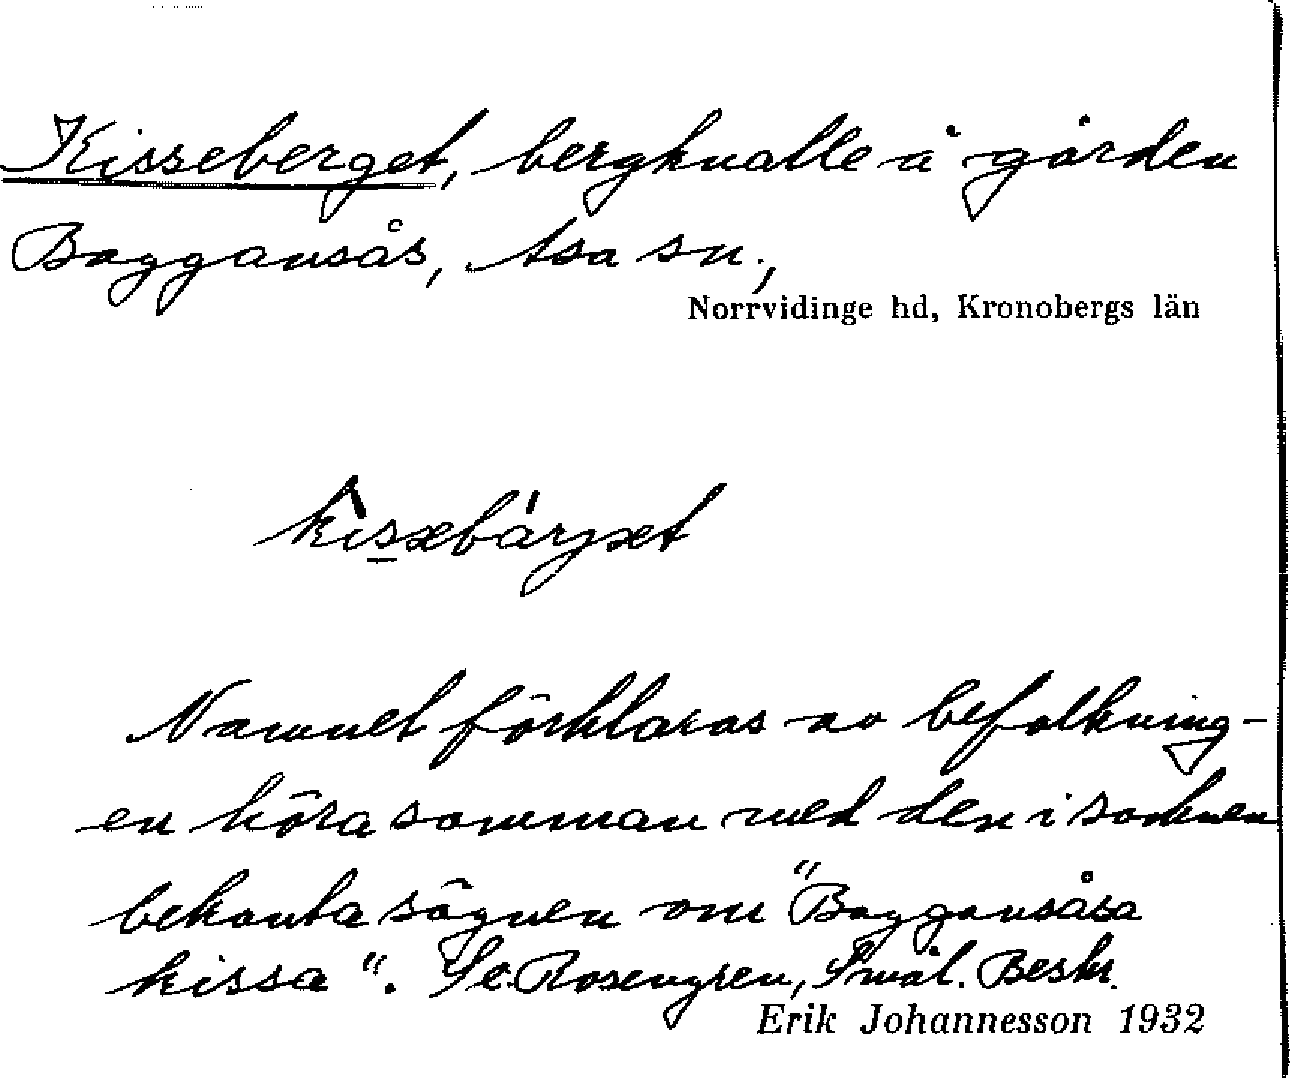 Kisseberget, bergknalle å gården
Baggansås, Asa sn.,
Norrvidinge hd, Kronobergs län
kissebärget
Namnet förklaras av befolkning-
en höra samman med den i socknen
bekanta sägnen om "Baggansåsa
kissa". Se Rosengren, Smål. Beskr.
Erik Johannesson 1932